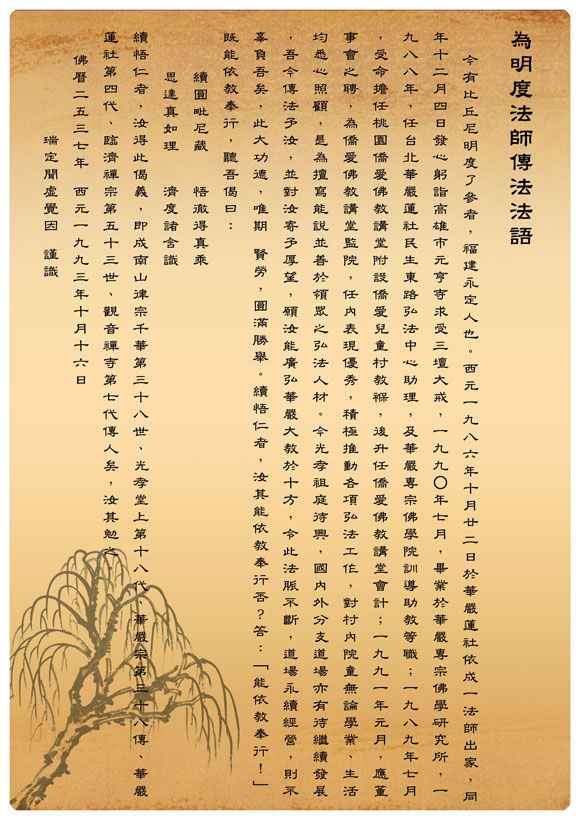 為明度法師傳法法語
今有比丘尼明度了參者，福建永定人也。西元一九八六年十月廿二日於華嚴蓮社依成一法師出家，同
年十二月四日發心躬詣高雄市元亨寺求受三壇大戒，一九九〇年七月，畢業於華嚴專宗佛學研究所，一
九八八年，任台北華嚴蓮社民生東路弘法中心助理，及華嚴專宗佛學院訓導助教等職；一九八九年七月
，受命擔任桃園僑愛佛教講堂附設僑愛兒童村教保，後升任僑愛佛教講堂會計；一九九一年元月，應董
事會之聘，為僑愛佛教講堂監院，任內表現優秀，積極推動各項弘法工作，對村內院童無論學業、生活
均悉心照顧，是為擅寫能說並善於領眾之弘法人材。今光孝祖庭待興，國內外分支道場亦有待繼續發展
，吾今傳法予汝，並對汝寄予厚望，願汝能廣弘華嚴大教於十方，令此法脈不斷，道場永續經營，則不
辜負吾矣，此大功德，唯期　賢勞，圓滿勝舉。續悟仁者，汝其能依教奉行否？答：「能依教奉行！」
既能依教奉行，聽吾偈曰：
續圓毗尼藏　悟徹得真乘
思達真如理　濟度諸含識
續悟仁者，汝得此偈義，即成南山律宗千華第三十八世、光孝堂上第十八代、華嚴宗第三十八傳、華嚴
蓮社第四代、臨濟禪宗第五十三世、觀音禪寺第七代傳人矣，汝其勉之
佛曆二五三七年　西元一九九三年十月十六日
瑞定聞虛覺因　謹識